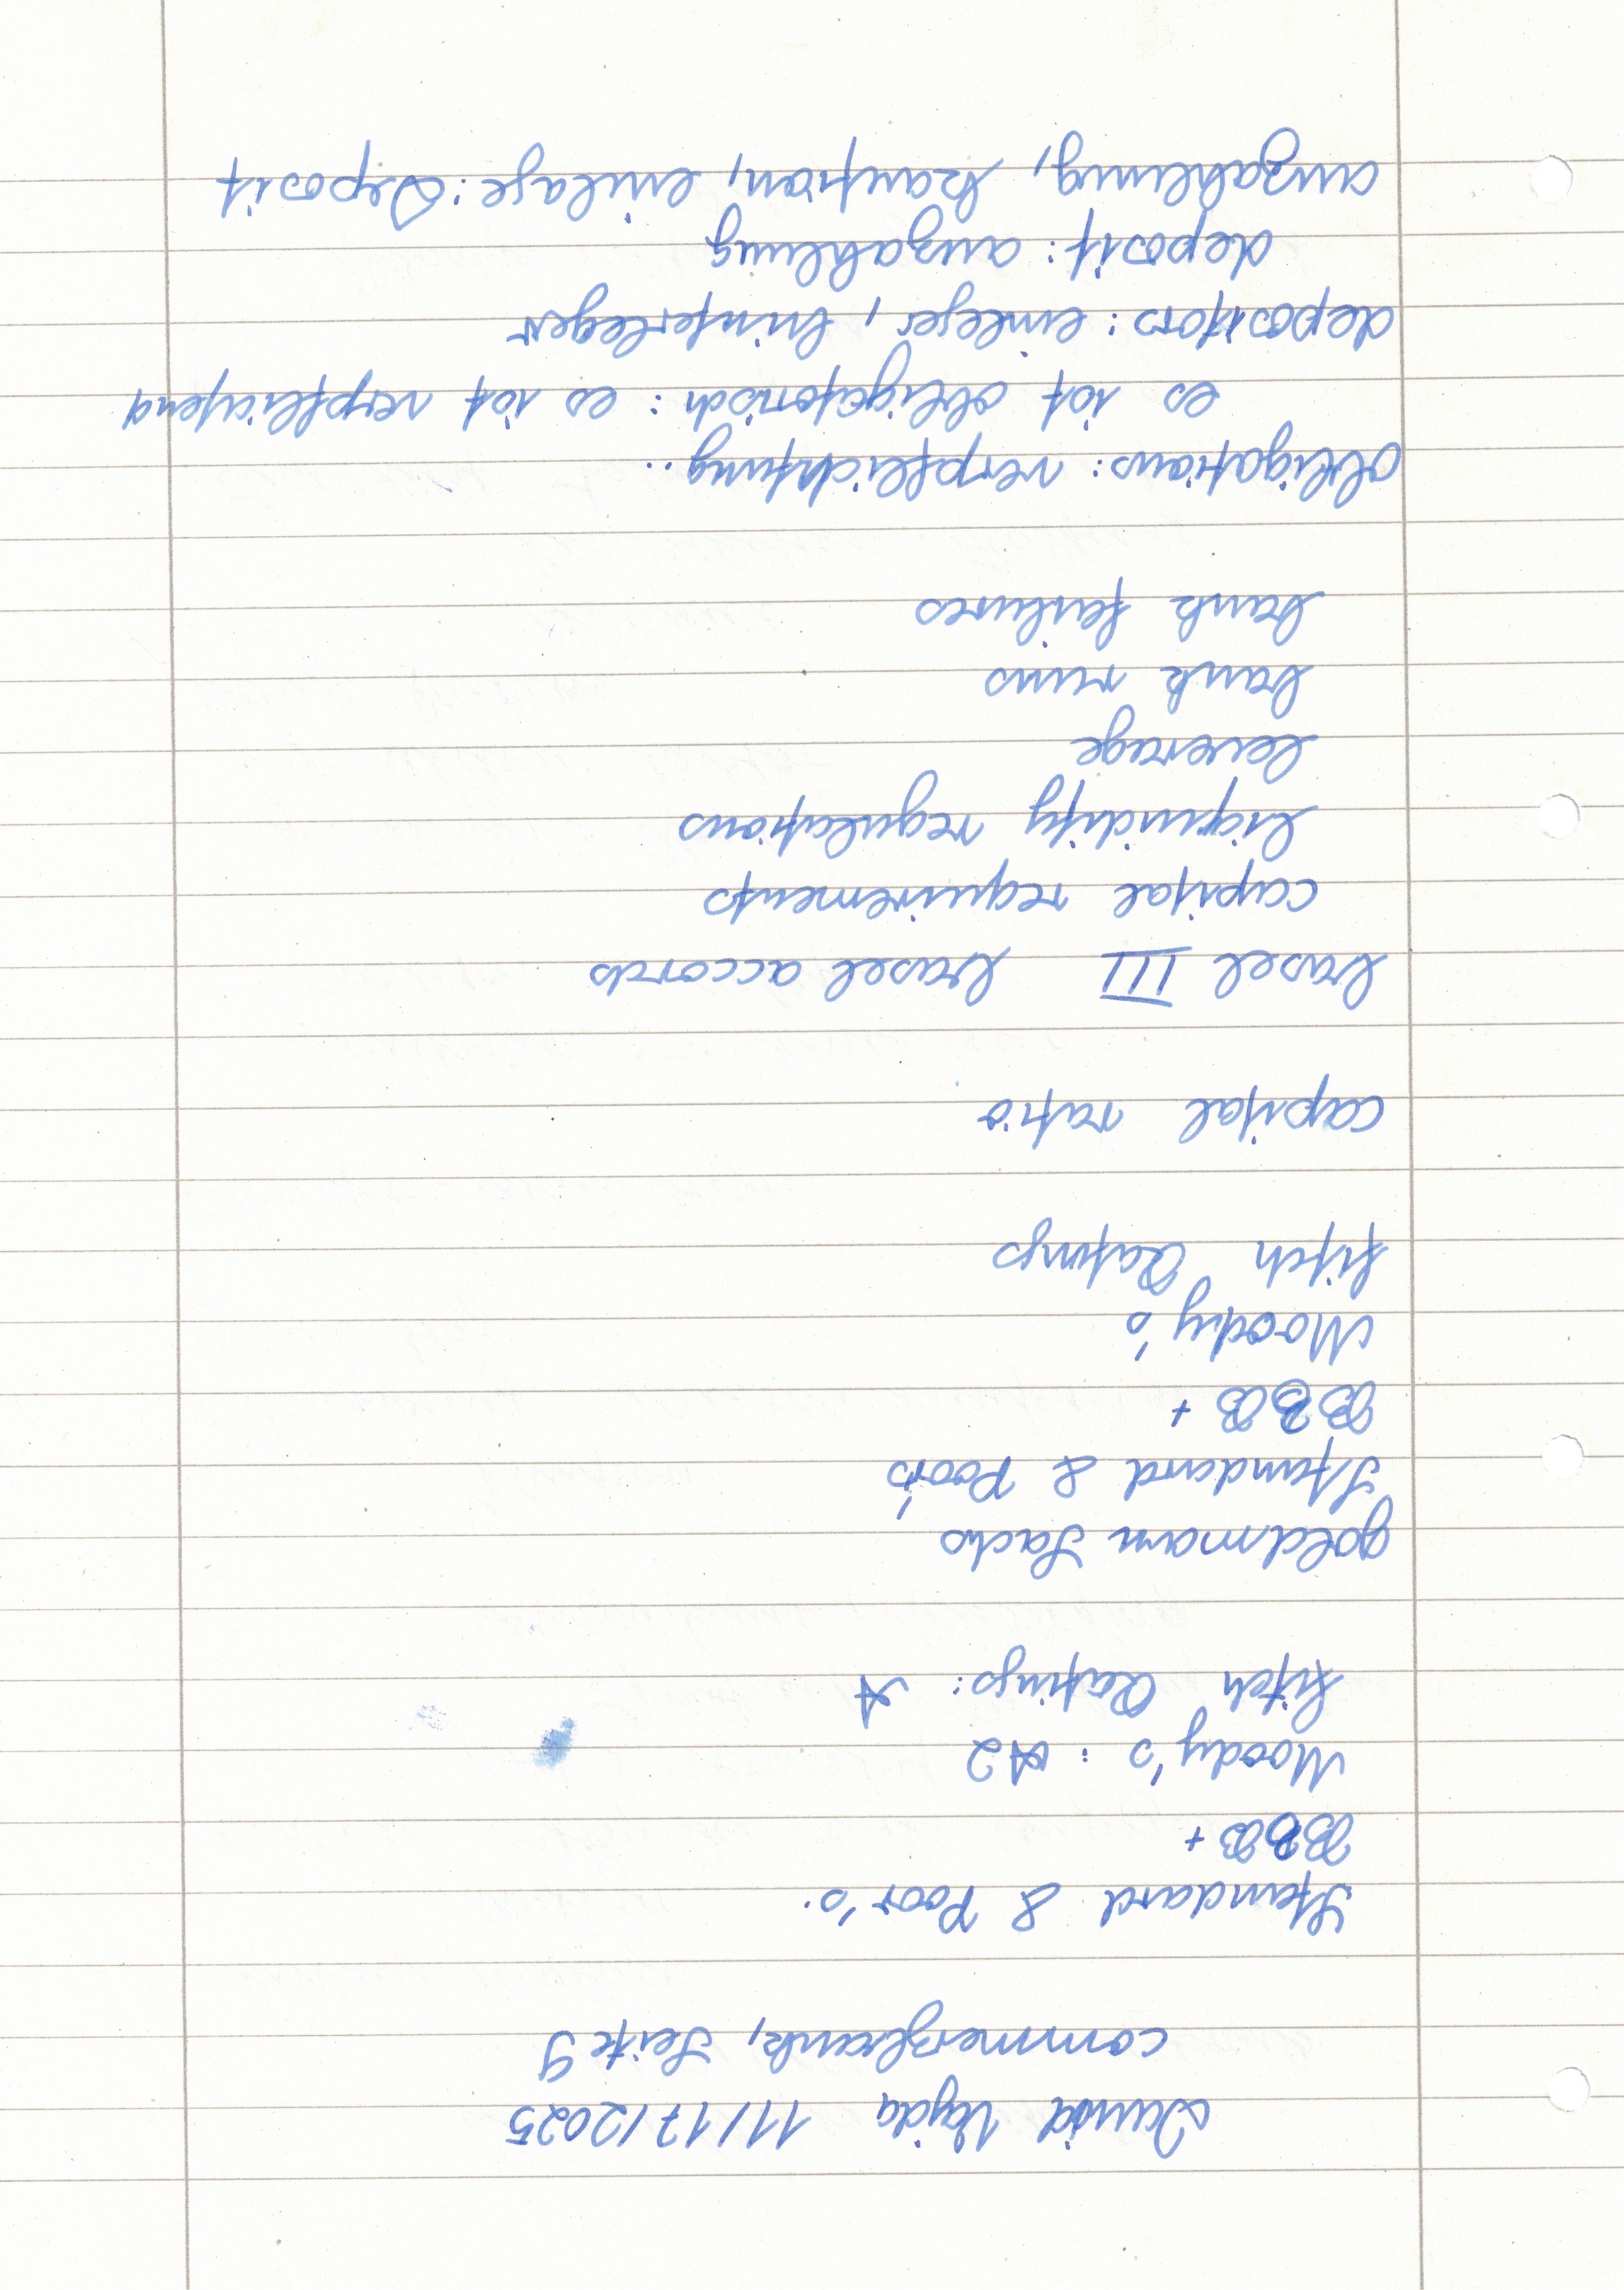 David Vajda 11/17/2025
commerzbank, Seite 9
Standard & Poor's:
BBB +
Moody's : A2
fitch Ratings: A
goldmann Sachs
Standard & Poor's
BBB +
Moody's
fitch Ratings
capital ratio
basel III basel accords
capital requirements
liquidity regulations
leverage
bank runs
bank failures
obligations: verpflichtung..
es ist obligatorisch: es ist verpflichtend
depositors: einleger, hinterleger
deposit: anzahlung
anzahlung, kaution, einlage: Deposit